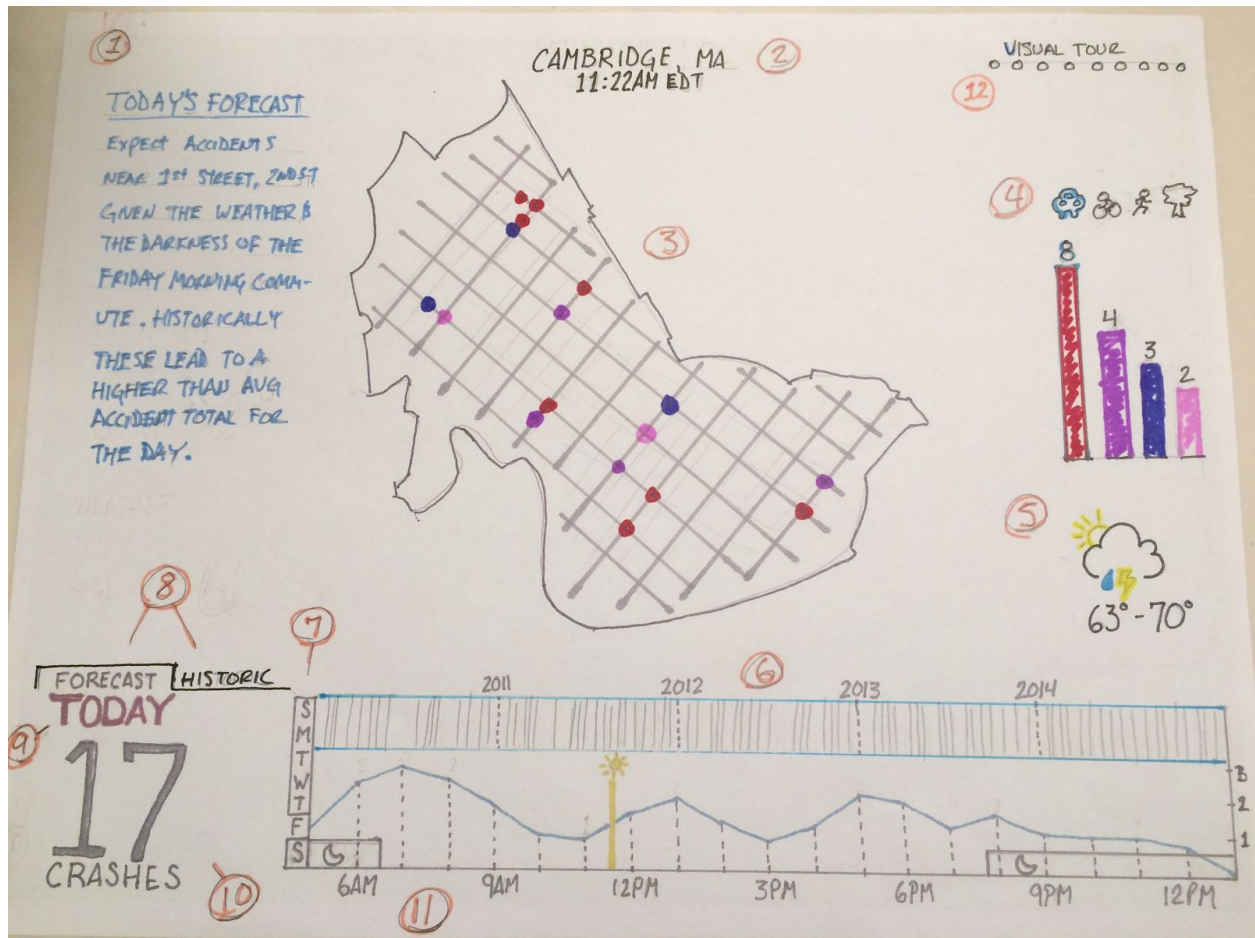 1
CAMBRIDGE, MA
2
11:22AM EDT
VISUAL TOUR
12
TODAY'S FORECAST
EXPECT ACCIDENTS
NEAR 1ST STREET, 2ND ST
GIVEN THE WEATHER &
THE DARKNESS OF THE
FRIDAY MORNING COMM-
UTE. HISTORICALLY
THESE LEAD TO A
HIGHER THAN AVG
ACCIDENT TOTAL FOR
THE DAY.
3
4
8
4
3
2
5
63°-70°
8
7
6
FORECAST
HISTORIC
TODAY
9
17
CRASHES
10
2011
2012
2013
2014
S
M
T
W
T
F
S
3
2
1
6AM
9AM
12PM
3PM
6PM
9PM
12PM
11